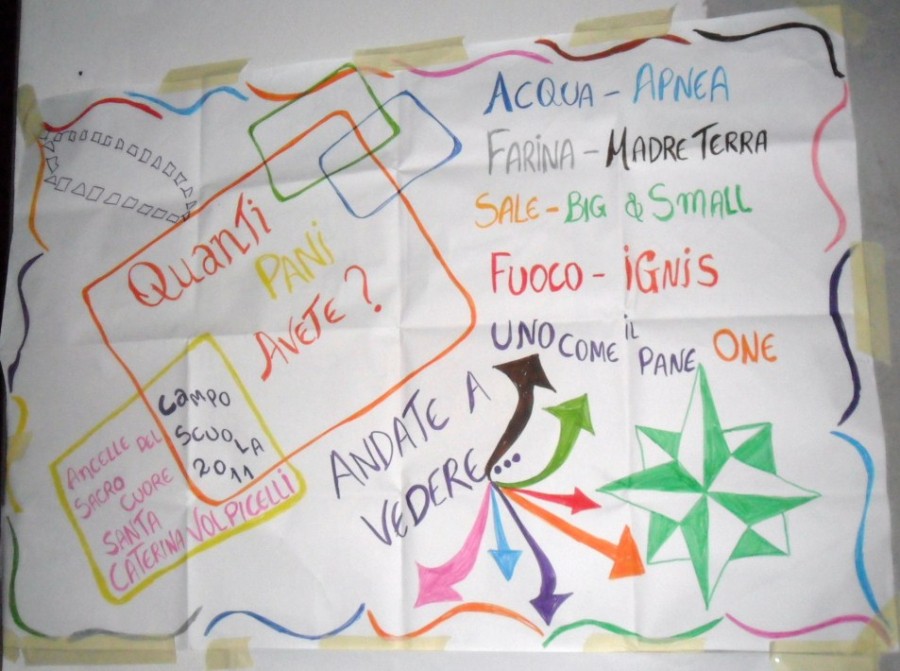 QUANTI
PANI
AVETE?
CAMPO
SCUOLA
2011
ANCELLE DEL
SACRO
CUORE
SANTA
CATERINA VOLPICELLI
ACQUA - APNEA
FARINA - MADRE TERRA
SALE - BIG & SMALL
FUOCO - IGNIS
UNO COME IL PANE ONE
ANDATE A
VEDERE...